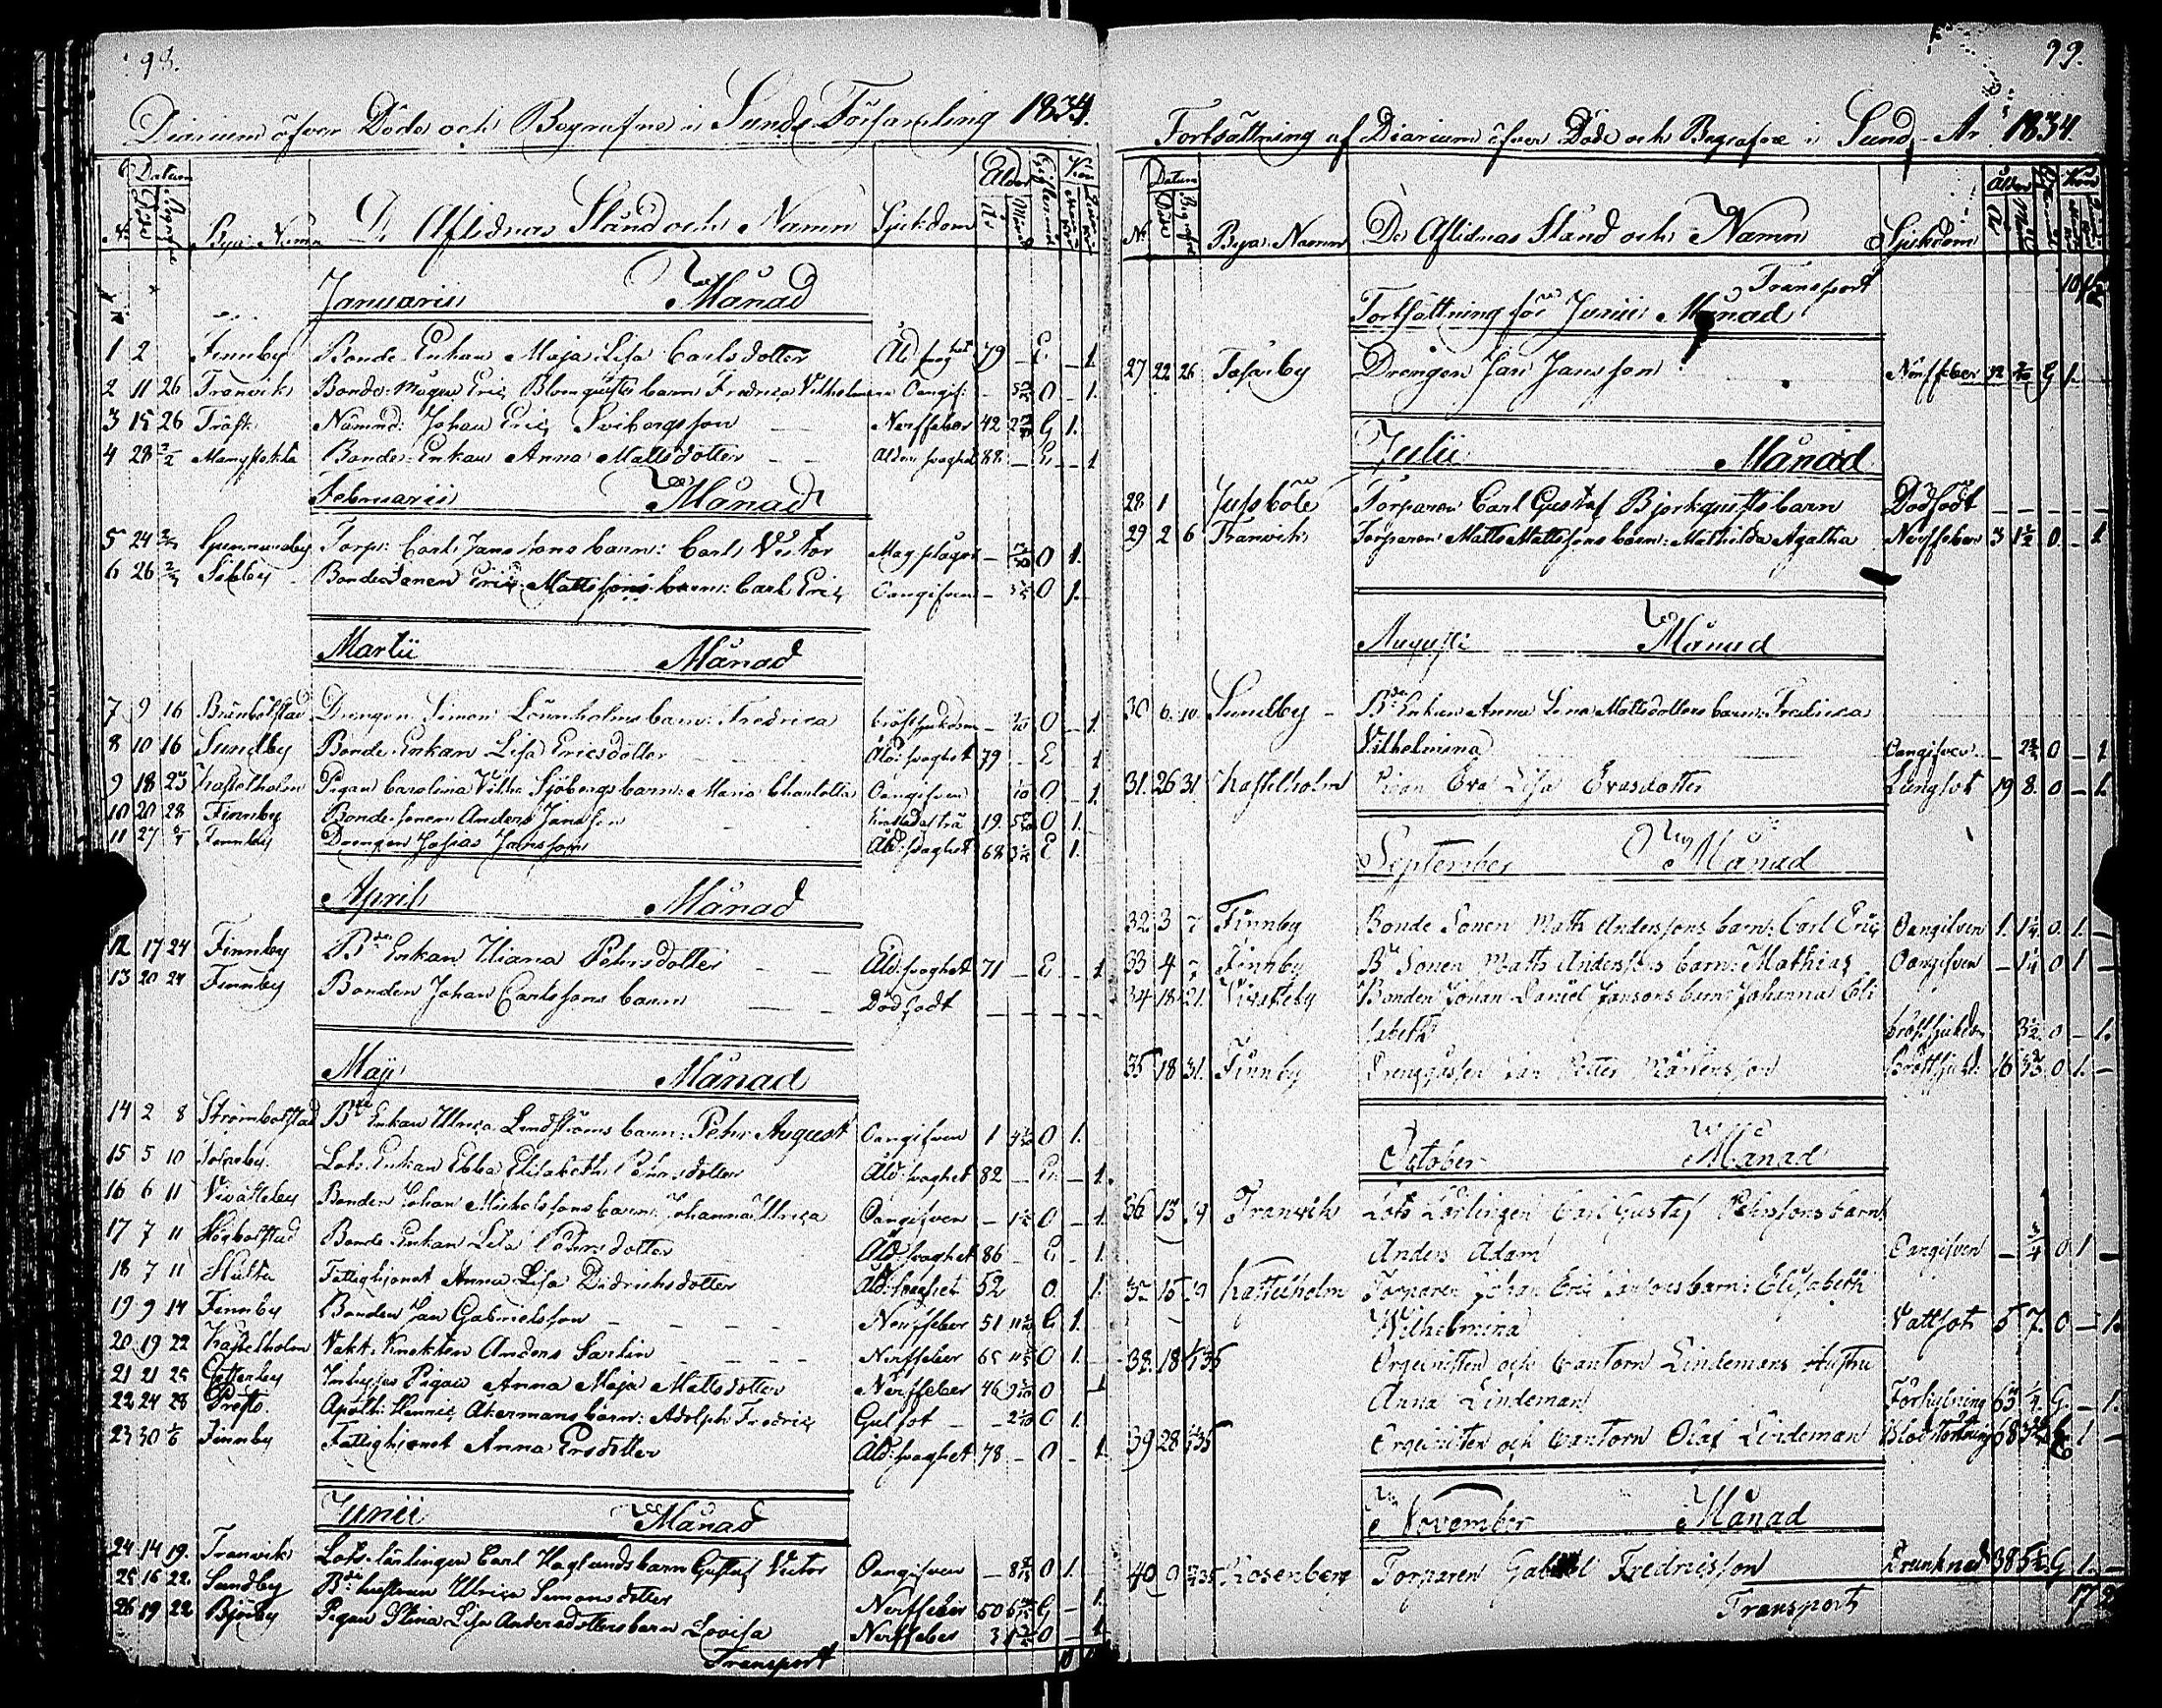 98.
Diarium öfver Döde och Begrafne i Sunds Församling 1834.
No Datum Döde Begrafne Bya Namn De Aflidnas Stånd och Namn Sjukdom Ålder År Månad Kön
Januarii Månad
1 2 Finnby Bonde Enkan Maja Lisa Carlsdotter 79 — E — 1
2 11 26 Tranvik Bonde Mågen Eric Blomquists barn Fredrica Vilhelmina Oangif: — O — 1.
3 15 26 Träsk Nämnd: Johan Eric Sviborgsson Nerffeber 42 G 1.
4 28 2/2 Mångstekta Bonde Enkan Anna Mattsdotter 88 — E — 1
Februarii Månad
5 24 Gunnarsby Torp: Carl Janssons barn: Carl Victor Magplågor — O 1.
6 26 Sibby Bonde Sonen Eric Mattssons barn: Carl Eric Oangifven — O 1.
Martii Månad
7 9 16 Brännbolstad Drengen Simon Lönnholms barn: Fredrica bröstsjukdom — O — 1.
8 10 16 Sundby Bonde Enkan Lisa Ericsdotter Åld: svaghet 79 E 1
9 18 23 Kastelholm Pigan Carolina Vilhe: Sjöbergs barn: Maria Charlotta Oangifven O — 1.
10 20 28 Finnby Bonde Sonen Anders Jansson 19. O 1.
11 27 Finnby Drengen Josias Jansson Åld: svaghet 68 E 1.
April Månad
12 17 24 Finnby Bde Enkan Uliana Pehrsdotter Åld: svaghet 71 — E — 1
13 20 24 Finnby Bonden Johan Carlssons barn Dödfödt
Maji Månad
14 2 8 Strömbolstad Bde Enkan Ulrica Lindströms barn: Pehr August Oangifven 1 O 1.
15 5 10 Tosarby Lots Enkan Ebba Elisabeth Pehrsdotter Åld: svaghet 82 — E — 1.
16 6 11 Vivasteby Bonden Johan Michelssons barn: Johanna Ulrica Oangifven — O — 1
17 7 11 Högbolstad Bonde Enkan Lisa Pehrsdotter Åld: svaghet 86 — E — 1.
18 7 11 Hulta Fattighjonet Anna Lisa Didrichsdotter Åld: svaghet 52 O. 1.
19 9 14 Finnby Bonden Jan Gabrielsson Nerffeber 51 G 1.
20 19 22 Kastelholm Vakt Knekten Anders Sarlin Nerffeber 65 O 1.
21 21 25 Gesterby Inhyses Pigan Anna Maja Mattsdotter Nerffeber 46 O 1
22 24 28 Prestö. Apoth: Henric Åkermans barn: Adolph Fredric Gulsot — O 1.
23 30 1/6 Finnby Fattighjonet Anna Ersdotter Åld: svaghet 78 — O 1.
Junii Månad
24 14 19. Tranvik Lots lärlingen Carl Haglunds barn Gustaf Victor Oangifven — O 1.
25 16 22. Sundby Bde hustrun Ulrica Simonsdotter Nerffeber 50 G — 1
26 19 22 Björby Pigan Stina Lisa Andersdotters barn Lovisa Nerffeber 3 O — 1
Transport
99.
Fortsättning af Diarium öfver Döde och Begrafne i Sund År 1834.
No Datum Döde Begrafne Bya Namn De Aflidnas Stånd och Namn Sjukdom Ålder År Månad Kön
Transport
Fortsättning för Junii Månad
27 22 26 Tosarby Drengen Jan Jansson Nerffeber G 1.
Julii Månad
28 1 Jussböle Torparen Carl Gustaf Björkquists barn Dödfödt
29 2 6 Tranvik Torparen Matts Mattssons barn: Mathilda Agatha Nerffeber 3 1½ O. — 1
Augusti Månad
30 6 10 Sundby Bde Enkan Anna Lena Mattsdotters barn: Fredrica
Vilhelmina Oangifven — O — 1
31. 26 31 Kastelholm Pigan Eva Lisa Evasdotter Lungsot 19 8. O — 1.
September Månad
32. 3 7 Finnby Bonde Sonen Matts Anderssons barn: Carl Eric Oangifven 1. O. 1. —
33 4 7 Finnby Bde Sonen Matts Anderssons barn: Mathias Oangifven — O 1 —
34 18 21. Vivasteby Bonden Johan Daniel Jansons barn: Johanna Eli
sabeth bröstsjukdom 3½ O — 1.
35 18 31. Finnby Drenggossen Jan Petter Mårtensson Bröstsjukd. 16 O 1. —
October Månad
36 13 19 Tranvik Lots Lärlingen Carl Gustaf Pehrssons barn
Anders Adam Oangifven — ¾ O. 1 —
37 15 19 Kastelholm Torparen Johan Eric Jansons barn: Elisabeth
Wilhelmina Vattsot 5 7. O — 1.
38. 18 Organisten och Cantorn Lindemans Hustru
Anna Lindeman 63 G. — 1.
39 28 Organisten och Cantorn Olaf Lindeman 68 G 1 —
November Månad
40 9 Rosenberg Torparen Gabriel Fredricsson Drunknad 38 G 1. —
Transport